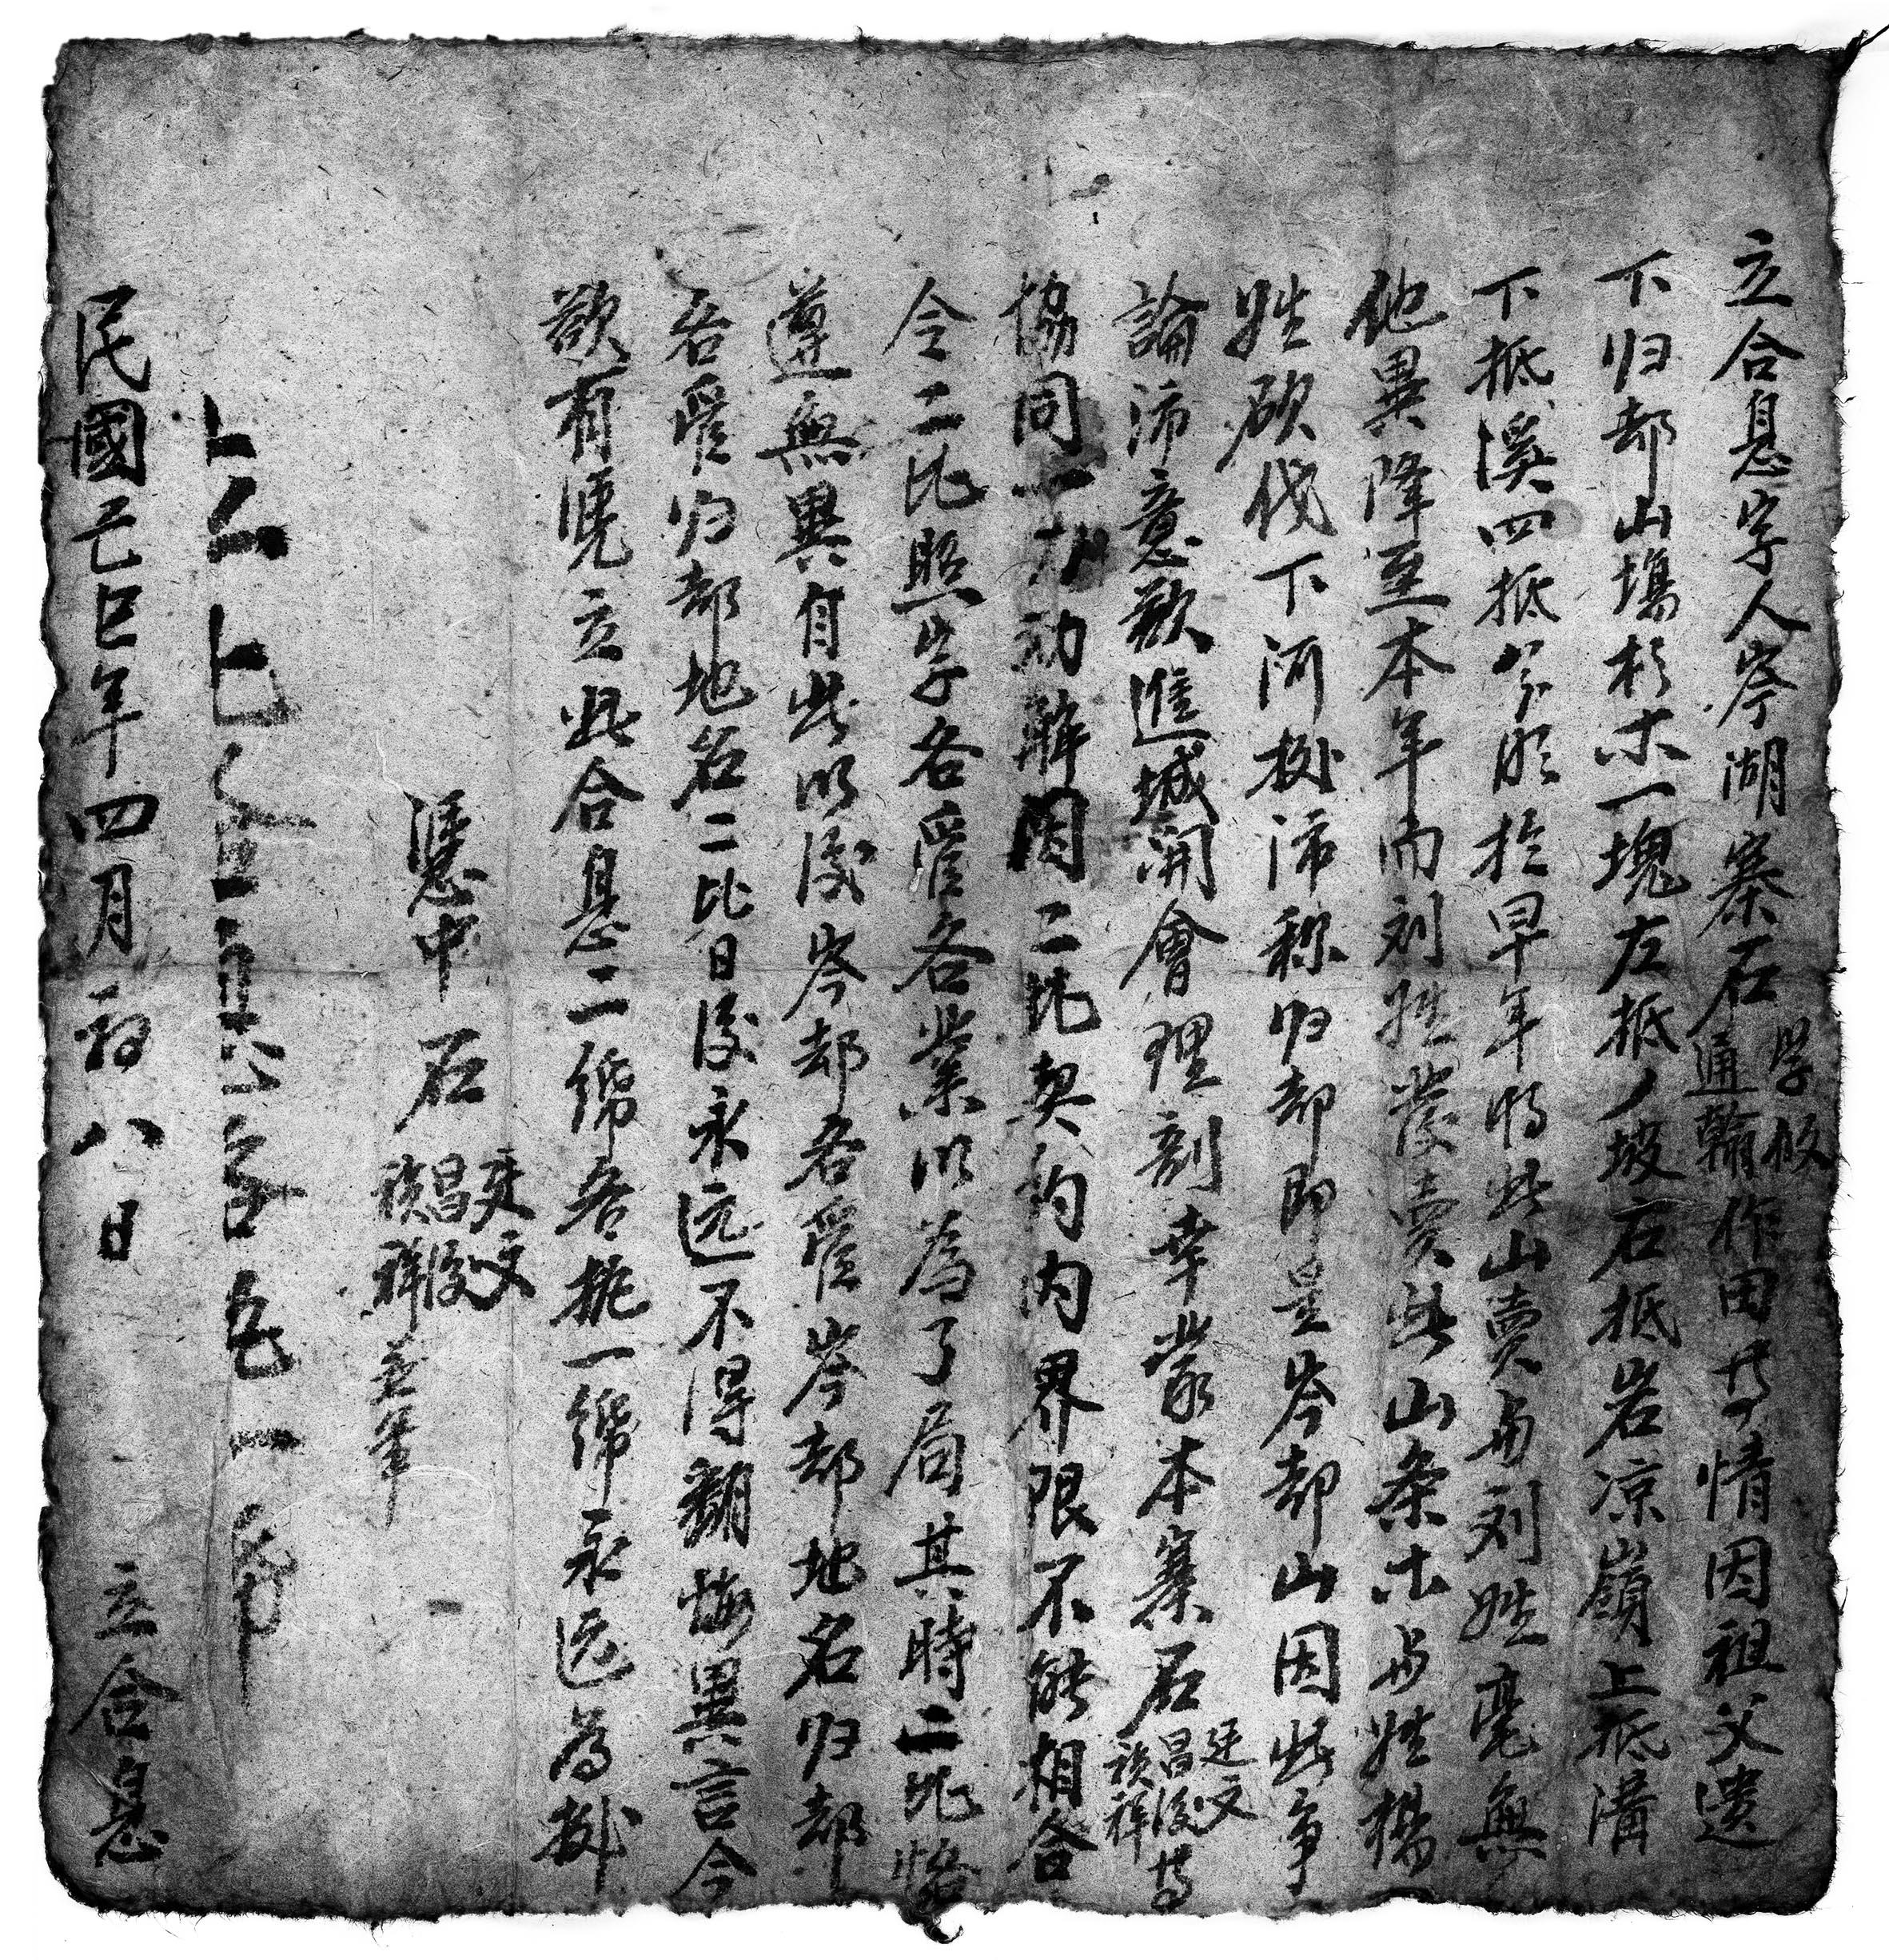 立合息字人岑湖寨石学俊通翰作田等情因祖父遗
下归却山塲杉木一塊左抵坡右抵岩凉嶺上抵溝
下抵溪四抵分明於早年將此山賣与刘姓毫無
他異降至本年而刘姓發賣此山条木与姓楊
姓砍伐下河被沛称归却即是岑却山因此争
論沛意欲進城開會理剖幸蒙本寨石廷文昌俊祯祥等
協同一力劝解因二比契约内界限不能相合
令二比照字各管各業以為了局其時二比悟
遵無異自此以後岑却各管岑却地名归却
各管归却地名二比日後永远不得翻悔異言今
欲有凴立此合息二紙各执一紙永远為據
憑中 石廷文昌俊祯祥 笔
民國己巳年四月初八日 立合息